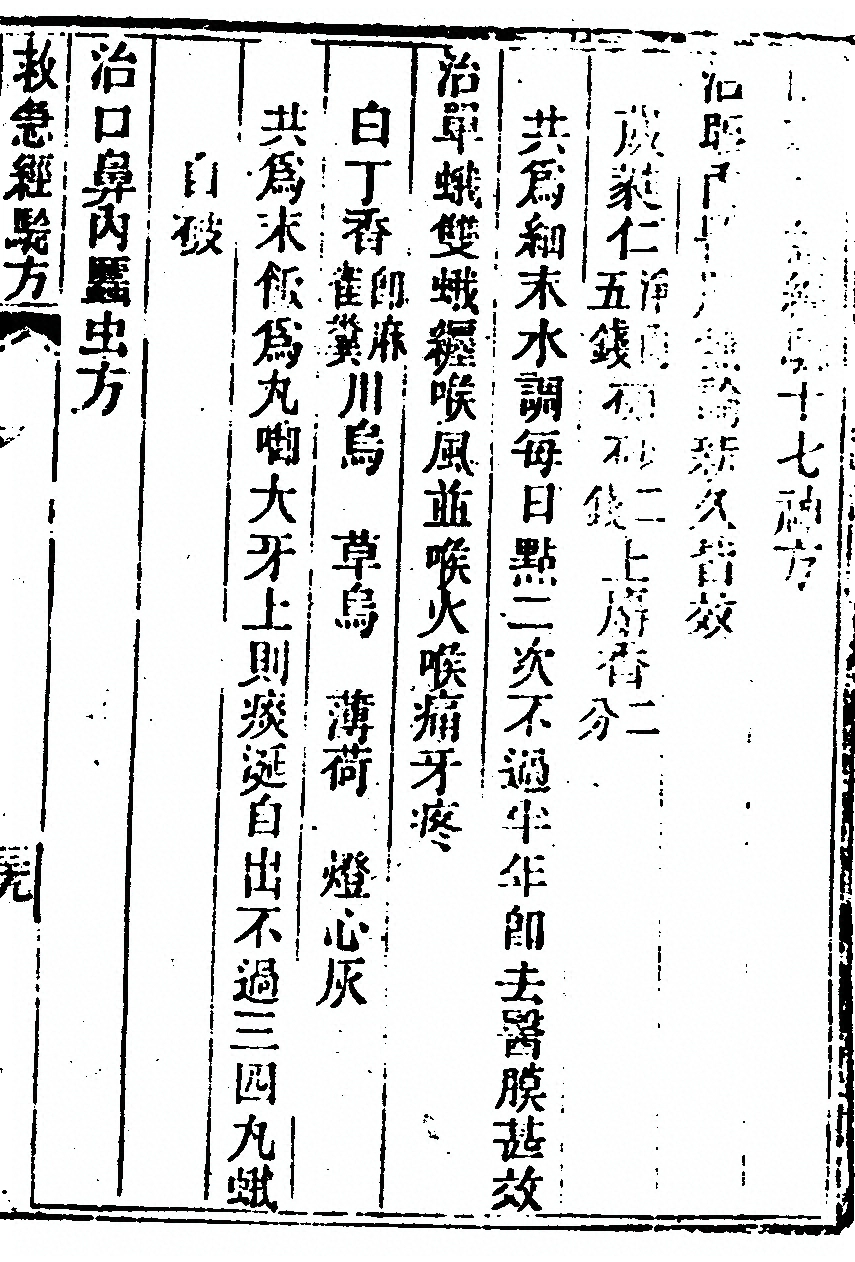 十七神方
治眼內 無論新久皆效
蕤仁五錢 二錢 上麝香二分
共爲細末水調每日點二次不過半年卽去翳膜甚效
治單蛾雙蛾纏喉風並喉火喉痛牙疼
白丁香卽麻雀糞川烏 草烏 薄荷 燈心灰
共爲末飯爲丸啣大牙上則痰涎自出不過三四丸蛾
自破
治口鼻內䘌虫方
救急經驗方